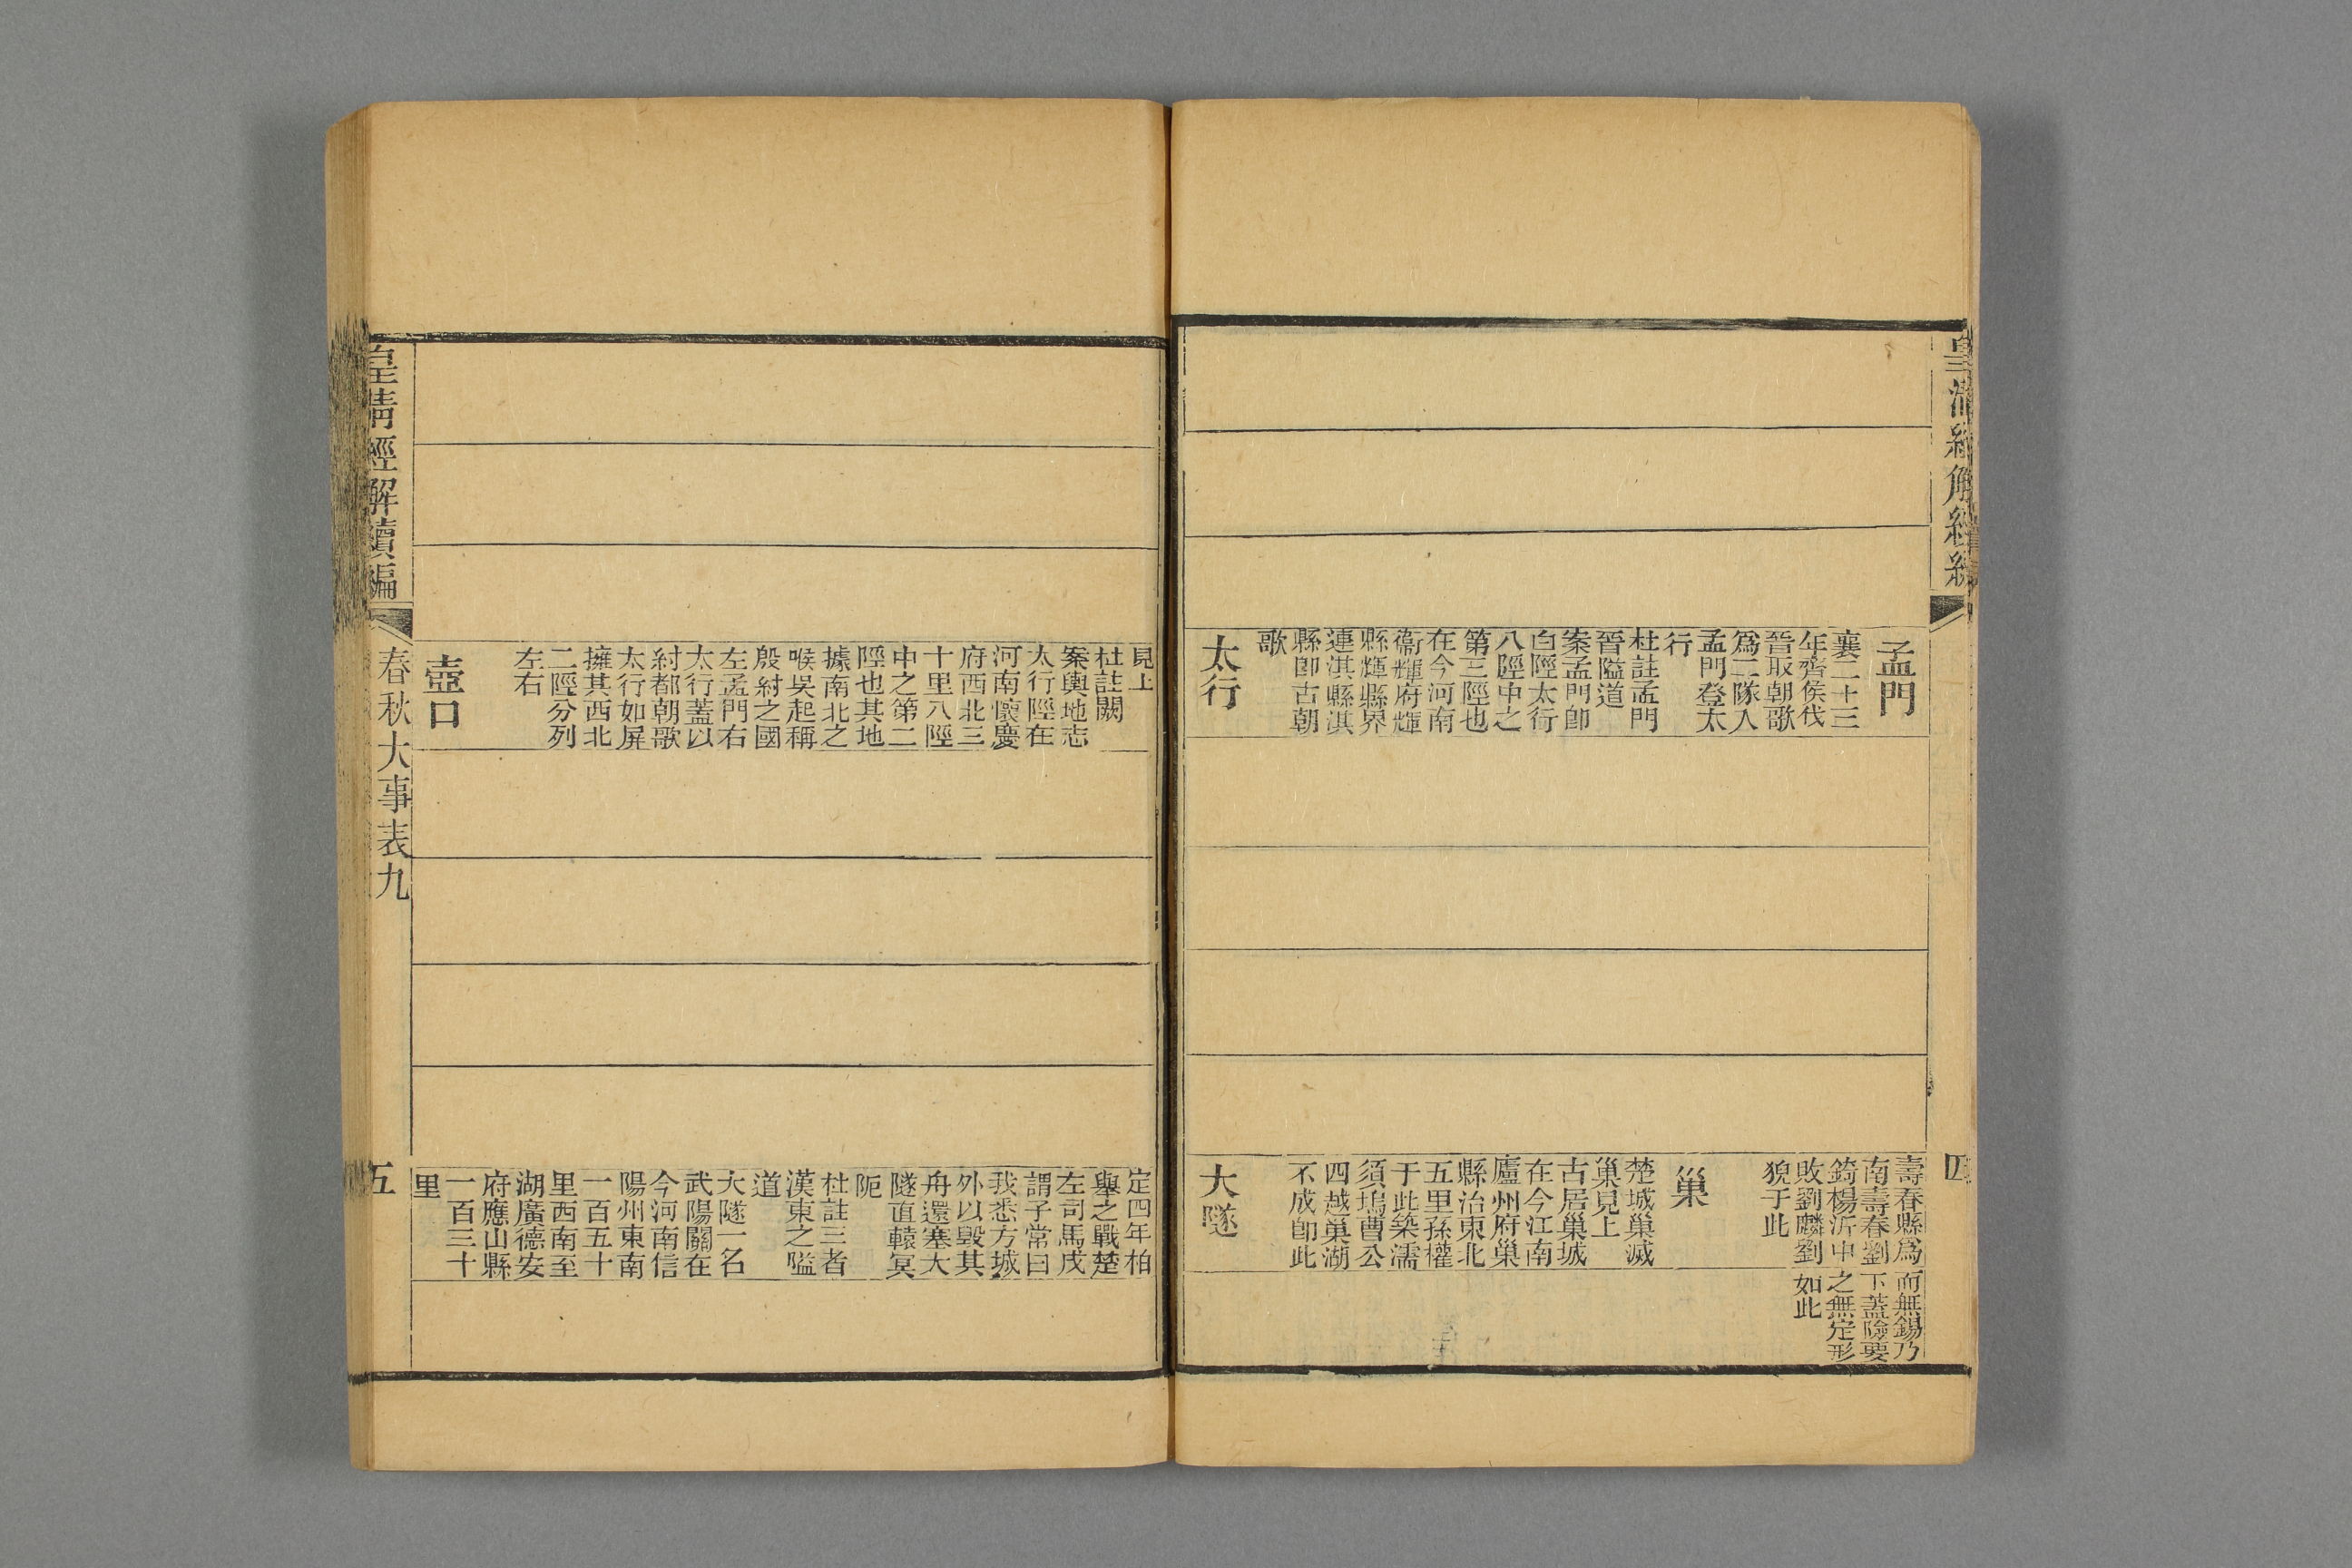 孟門
襄二十三
年齊侯伐
晉取朝歌
爲二隊入
孟門登太
行
杜註孟門
晉隘道
案孟門卽
白陘太行
八陘中之
第三陘也
在今河南
衞輝府輝
縣輝縣界
連淇縣淇
縣卽古朝
歌
太行
壽春縣爲
南壽春劉
錡楊沂中
敗劉麟劉
猊于此
巢
楚城巢滅
巢見上
古居巢城
在今江南
廬州府巢
縣治東北
五里孫權
于此築濡
須塢曹公
四越巢湖
不成卽此
大隧
而無錫乃
下蓋險要
之無定形
如此
四
見上
杜註闕
案輿地志
太行陘在
河南懷慶
府西北三
十里八陘
中之第二
陘也其地
據南北之
喉吳起稱
殷紂之國
左孟門右
太行蓋以
紂都朝歌
太行如屏
擁其西北
二陘分列
左右
壺口
定四年柏
舉之戰楚
左司馬戌
謂子常曰
我悉方城
外以毀其
舟還塞大
隧直轅冥
阨
杜註三者
漢東之隘
道
大隧一名
武陽關在
今河南信
陽州東南
一百五十
里西南至
湖廣德安
府應山縣
一百三十
里
皇清經解續編
春秋大事表九
五